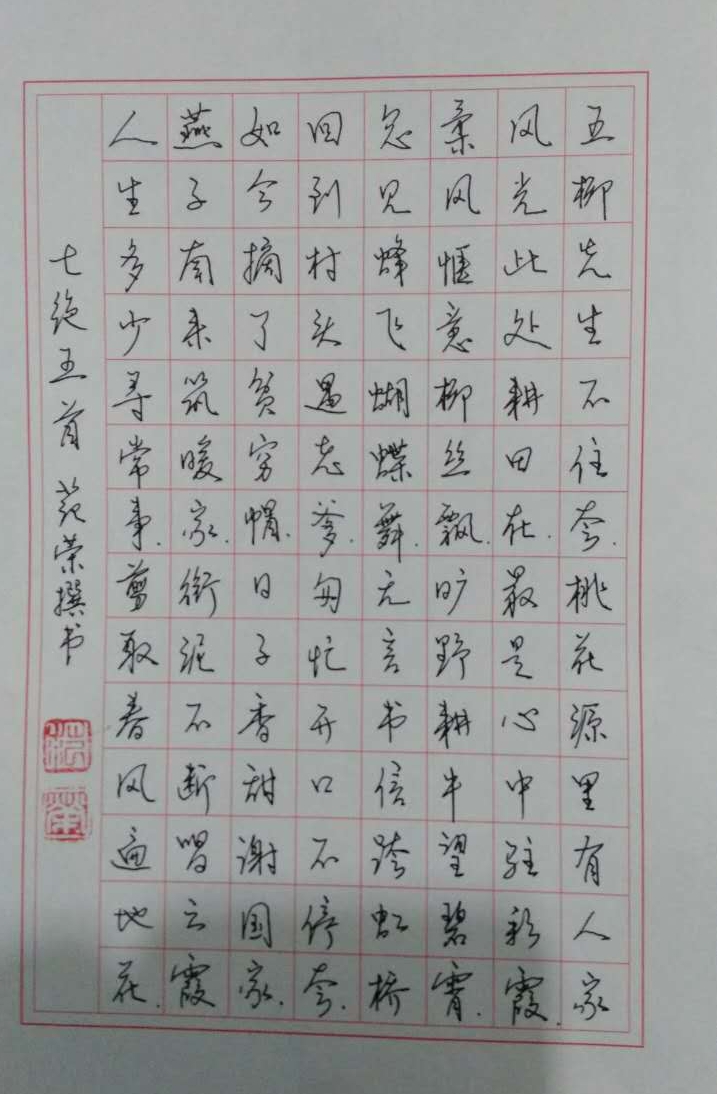 五柳先生不住夸桃花源里有人家
风光此处耕田在.最是心中驻彩霞.
熏风惬意柳丝飘.旷野耕牛望碧霄.
忽见蜂飞蝴蝶舞.无言书信跨虹桥
回到村头遇老爹.匆忙开口不停夸.
如今摘了贫穷帽.日子香甜谢国家.
燕子南来筑暖家.衔泥不断唱云霞
人生多少寻常事.剪取春风遍地花.
七绝五首 范荣撰书